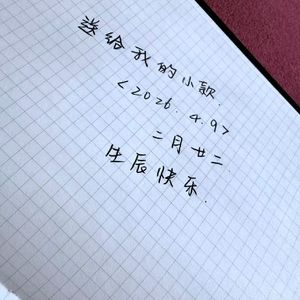 送给我的小款.
<2026.4.9>
二月廿二
生辰快乐.